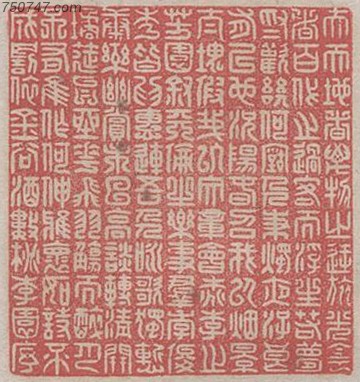 夫天地者萬物之逆旅光陰
者百代之過客而浮生若夢
為歡幾何古人秉燭夜遊良
有以也況陽春召我以煙景
大塊假我以文章會桃李之
芳園敘天倫之樂事群季俊
秀皆為惠連吾人詠歌獨慚
康樂幽賞未已高談轉清開
瓊筵以坐花飛羽觴而醉月
不有佳作何伸雅懷如詩不
成罰依金谷酒數桃李園序
750747.com